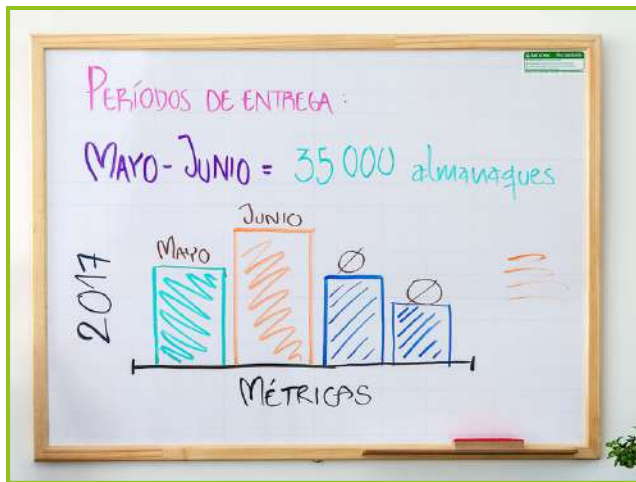 PERÍODOS DE ENTREGA:
MAYO - JUNIO = 35 000 almanaques
JUNIO
MAYO
Ø
Ø
2017
MÉTRICAS